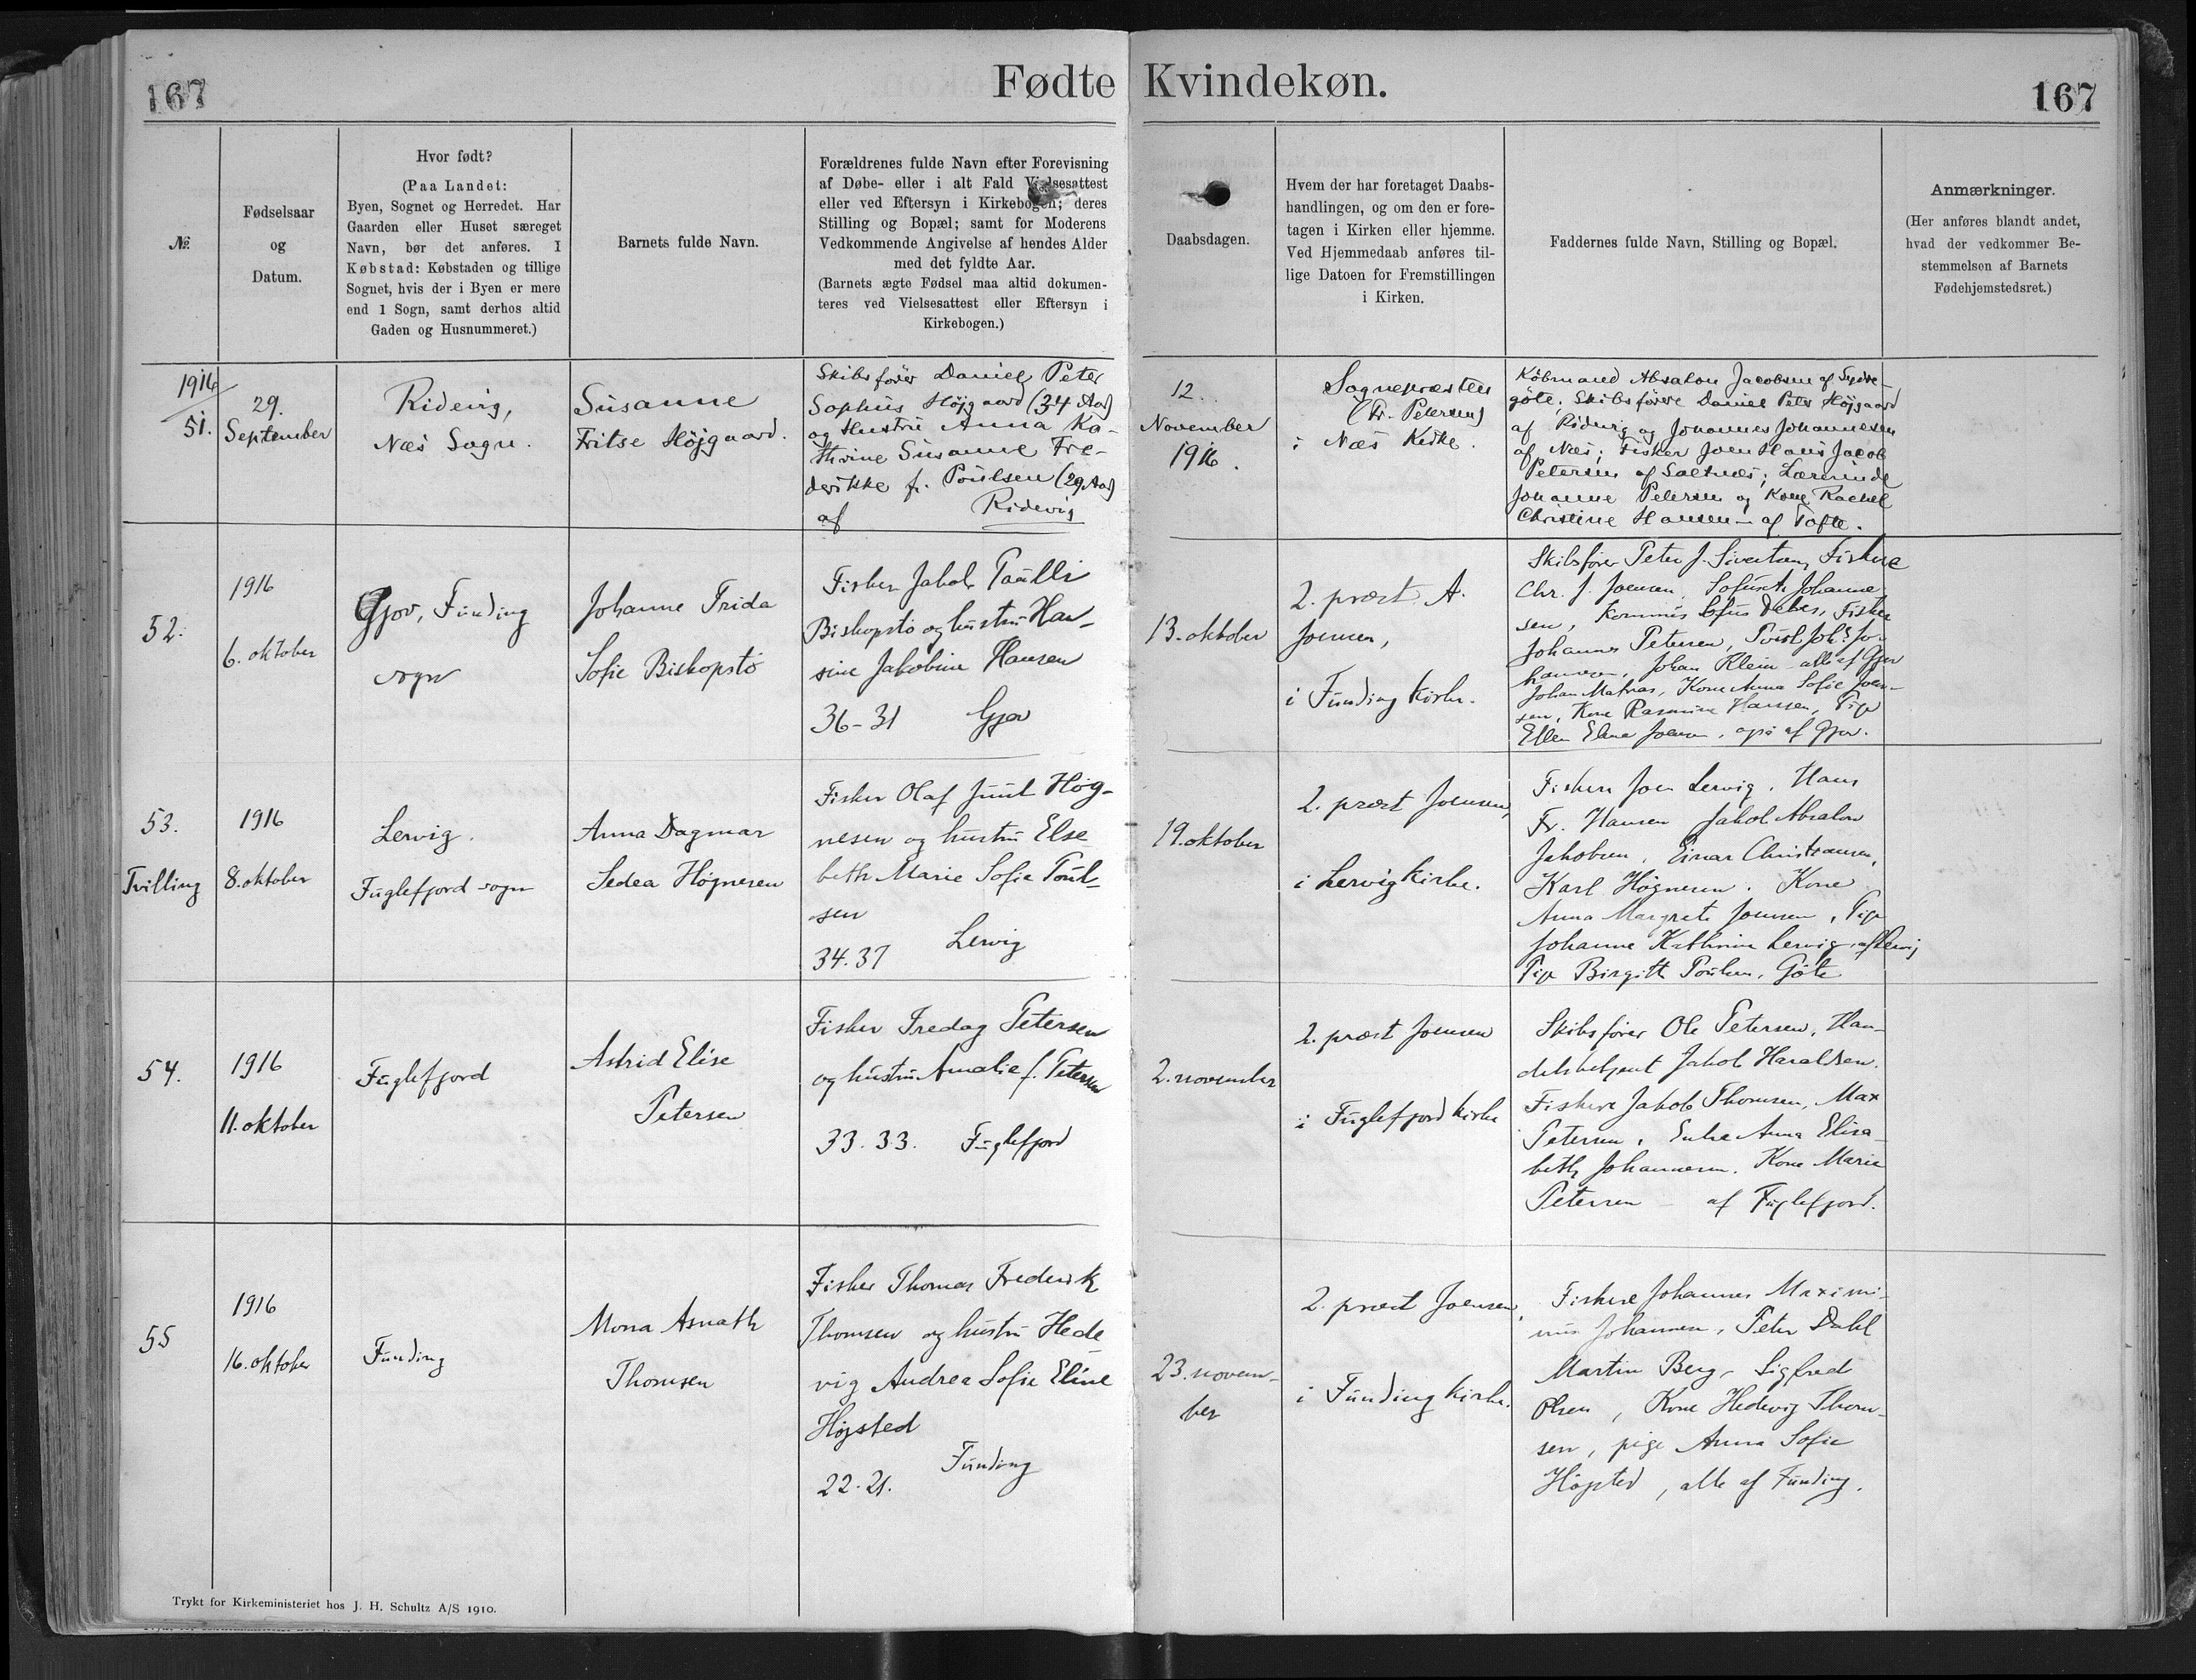 167
Fødte Kvindekøn.
167
№
Fødselsaar
og
Datum.
Hvor født?
(Paa Landet:
Byen, Sognet og Herredet. Har
Gaarden eller Huset særeget
Navn, bør det anføres. I
Købstad: Købstaden og tillige
Sognet, hvis der i Byen er mere
end 1 Sogn, samt derhos altid
Gaden og Husnummeret.)
Barnets fulde Navn.
Forældrenes fulde Navn efter Forevisning
af Døbe- eller i alt Fald Vielsesattest
eller ved Eftersyn i Kirkebogen; deres
Stilling og Bopæl; samt for Moderens
Vedkommende Angivelse af hendes Alder
med det fyldte Aar.
(Barnets ægte Fødsel maa altid dokumen-
teres ved Vielsesattest eller Eftersyn i
Kirkebogen.)
Daabsdagen.
Hvem der har foretaget Daabs-
handlingen, og om den er fore-
tagen i Kirken eller hjemme.
Ved Hjemmedaab anføres til-
lige Datoen for Fremstillingen
i Kirken.
Faddernes fulde Navn, Stilling og Bopæl.
Anmærkninger.
(Her anføres blandt andet,
hvad der vedkommer Be-
stemmelsen af Barnets
Fødehjemstedsret.)
1916
51.
29.
September
Ridevig,
Næs Sogn.
Susanne
Fritse Højgaard.
Skibsfører Daniel Peter
Sophus Højgaard (34 Aar)
og Hustru Anna Ka-
thrine Susanne Fre-
derikke f. Poulsen (29 Aar)
af Ridevig
12.
November
1916.
Sognepræsten
(Fr. Petersen)
i Næs Kirke.
Købmand Absalon Jacobsen af Sydre-
göte; Skibsførere Daniel Peter Højgaard
af Ridevig og Johannes Johannesen
af Næs; Fisker Joen Hans Jacob
Petersen af Saltnæs; Lærerinde
Johanne Petersen og Kone Rachel
Christine Hansen – af Tofte.
52.
1916
6. oktober
Gjov, Funding
sogn
Johanne Frida
Sofie Bishopstö
Fisker Jakob Paulli
Bishopstö og hustru Han-
sine Jakobine Hansen
36-31 Gjov
13. oktober
2. præst A.
Joensen,
i Funding kirke.
Skibsfører Peter J. Sivertsen, Fiskere
Chr. J. Joensen, Johanne-
sen, Sofus Debes, Fisker
Johannes Petersen, Poul Joh. Jo-
hannesen, Johan Klein alle af Gjov
Johan Matras, Kone Anna Sofie Joen-
sen, Kone Rasmine Hansen, Pige
Ellen Elma Joensen, også af Gjov.
53.
Tvilling
1916
8. oktober
Lervig.
Fuglefjord sogn
Anna Dagmar
Sedea Högnesen
Fisker Olaf Juul Hög-
nesen og hustru Else
beth Marie Sofie Poul-
sen
34.37 Lervig
19. oktober
2. præst Joensen,
i Lervig kirke.
Fiskere Joen Lervig, Hans
Fr. Hansen Jakob Absalon
Jakobsen, Einar Christiansen,
Karl Högnesen. Kone
Anna Margrete Joensen, Pige
Johanne Kathrine Lervig, af Lervig
Pige Birgitte Poulsen, Göte
54.
1916
11. oktober
Fuglefjord
Astrid Elise
Petersen
Fisker Fredag Petersen
og hustru Amalie f. Petersen
33. 33. Fuglefjord
2. november
2. præst Joensen
i Fuglefjord kirke
Skibsfører Ole Petersen, Han-
delsbetjent Jakob Haraldsen.
Fiskere Jakob Thomsen, Max
Petersen, Enke Anna Elisa-
beth Johannesen. Kone Marie
Petersen – af Fuglefjord.
55
1916
16. oktober
Funding
Mona Asnath
Thomsen
Fisker Thomas Frederik
Thomsen og hustru Hede
vig Andrea Sofie Eline
Højsted
22.21. Funding
23. novem-
ber
2. præst Joensen,
i Funding kirke.
Fiskere Johannes Maximi-
nus Johannesen, Peter Dahl
Martin Berg, Sigfred
Olsen, Kone Hedevig Thom-
sen, pige Anna Sofie
Højsted, alle af Funding.
Trykt for Kirkeministeriet hos J. H. Schultz A/S 1910.